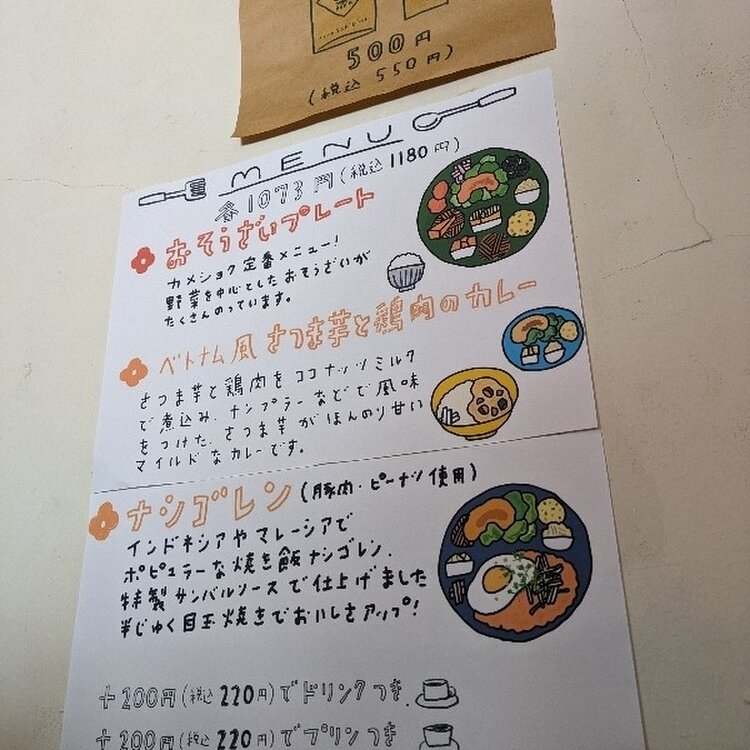 500円
(税込 550円)
MENU
各1073円(税込1180円)
おそうざいプレート
カメショク定番メニュー!
野菜を中心としたおそうざいが
たくさんのっています。
ベトナム風 さつま芋と鶏肉のカレー
さつま芋と鶏肉をココナッツミルク
で煮込み、ナンプラーなどで風味
をつけた、さつま芋がほんのり甘い
マイルドなカレーです。
ナシゴレン(豚肉・ピーナツ使用)
インドネシアやマレーシアで
ポピュラーな焼き飯ナシゴレン、
特製サンバルソースで仕上げました
半じゅく目玉焼きでおいしさアップ!
+200円(税込220円)でドリンクつき
+200円(税込220円)でプリンつき